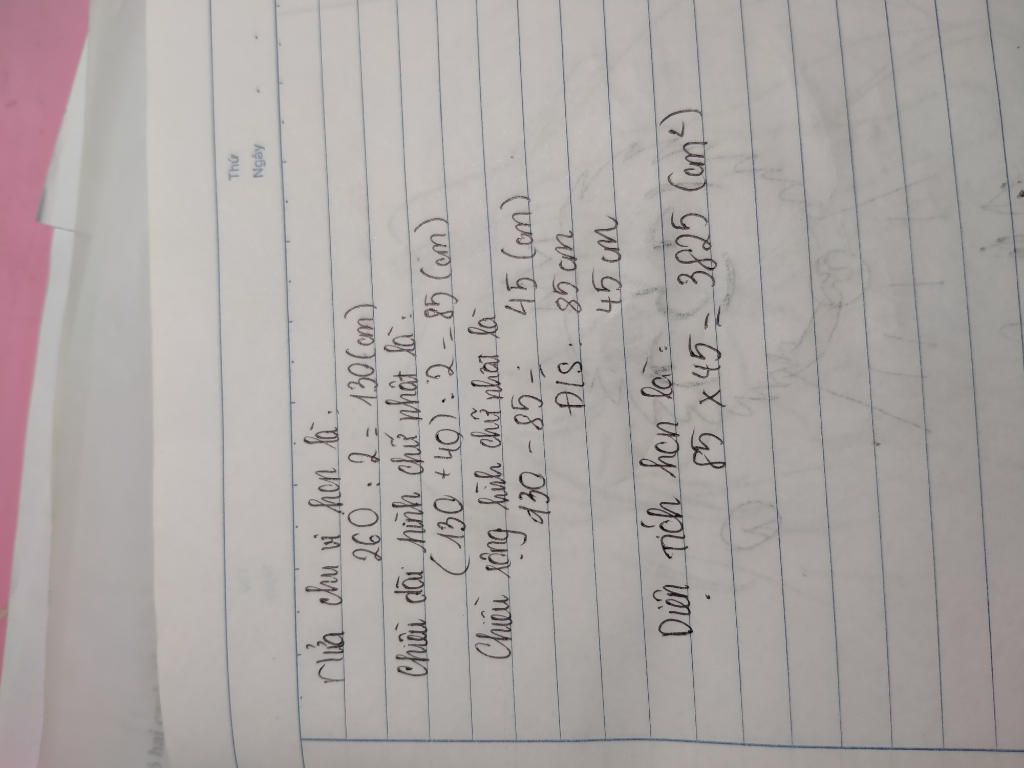 Thứ
Ngày
Nửa chu vi hcn là:
260 : 2 = 130 (cm)
Chiều dài hình chữ nhật là:
(130 + 40) : 2 = 85 (cm)
Chiều rộng hình chữ nhật là
130 - 85 = 45 (cm)
Đ/S: 85 cm
45 cm
Diện tích hcn là:
85 x 45 = 3825 (cm²)